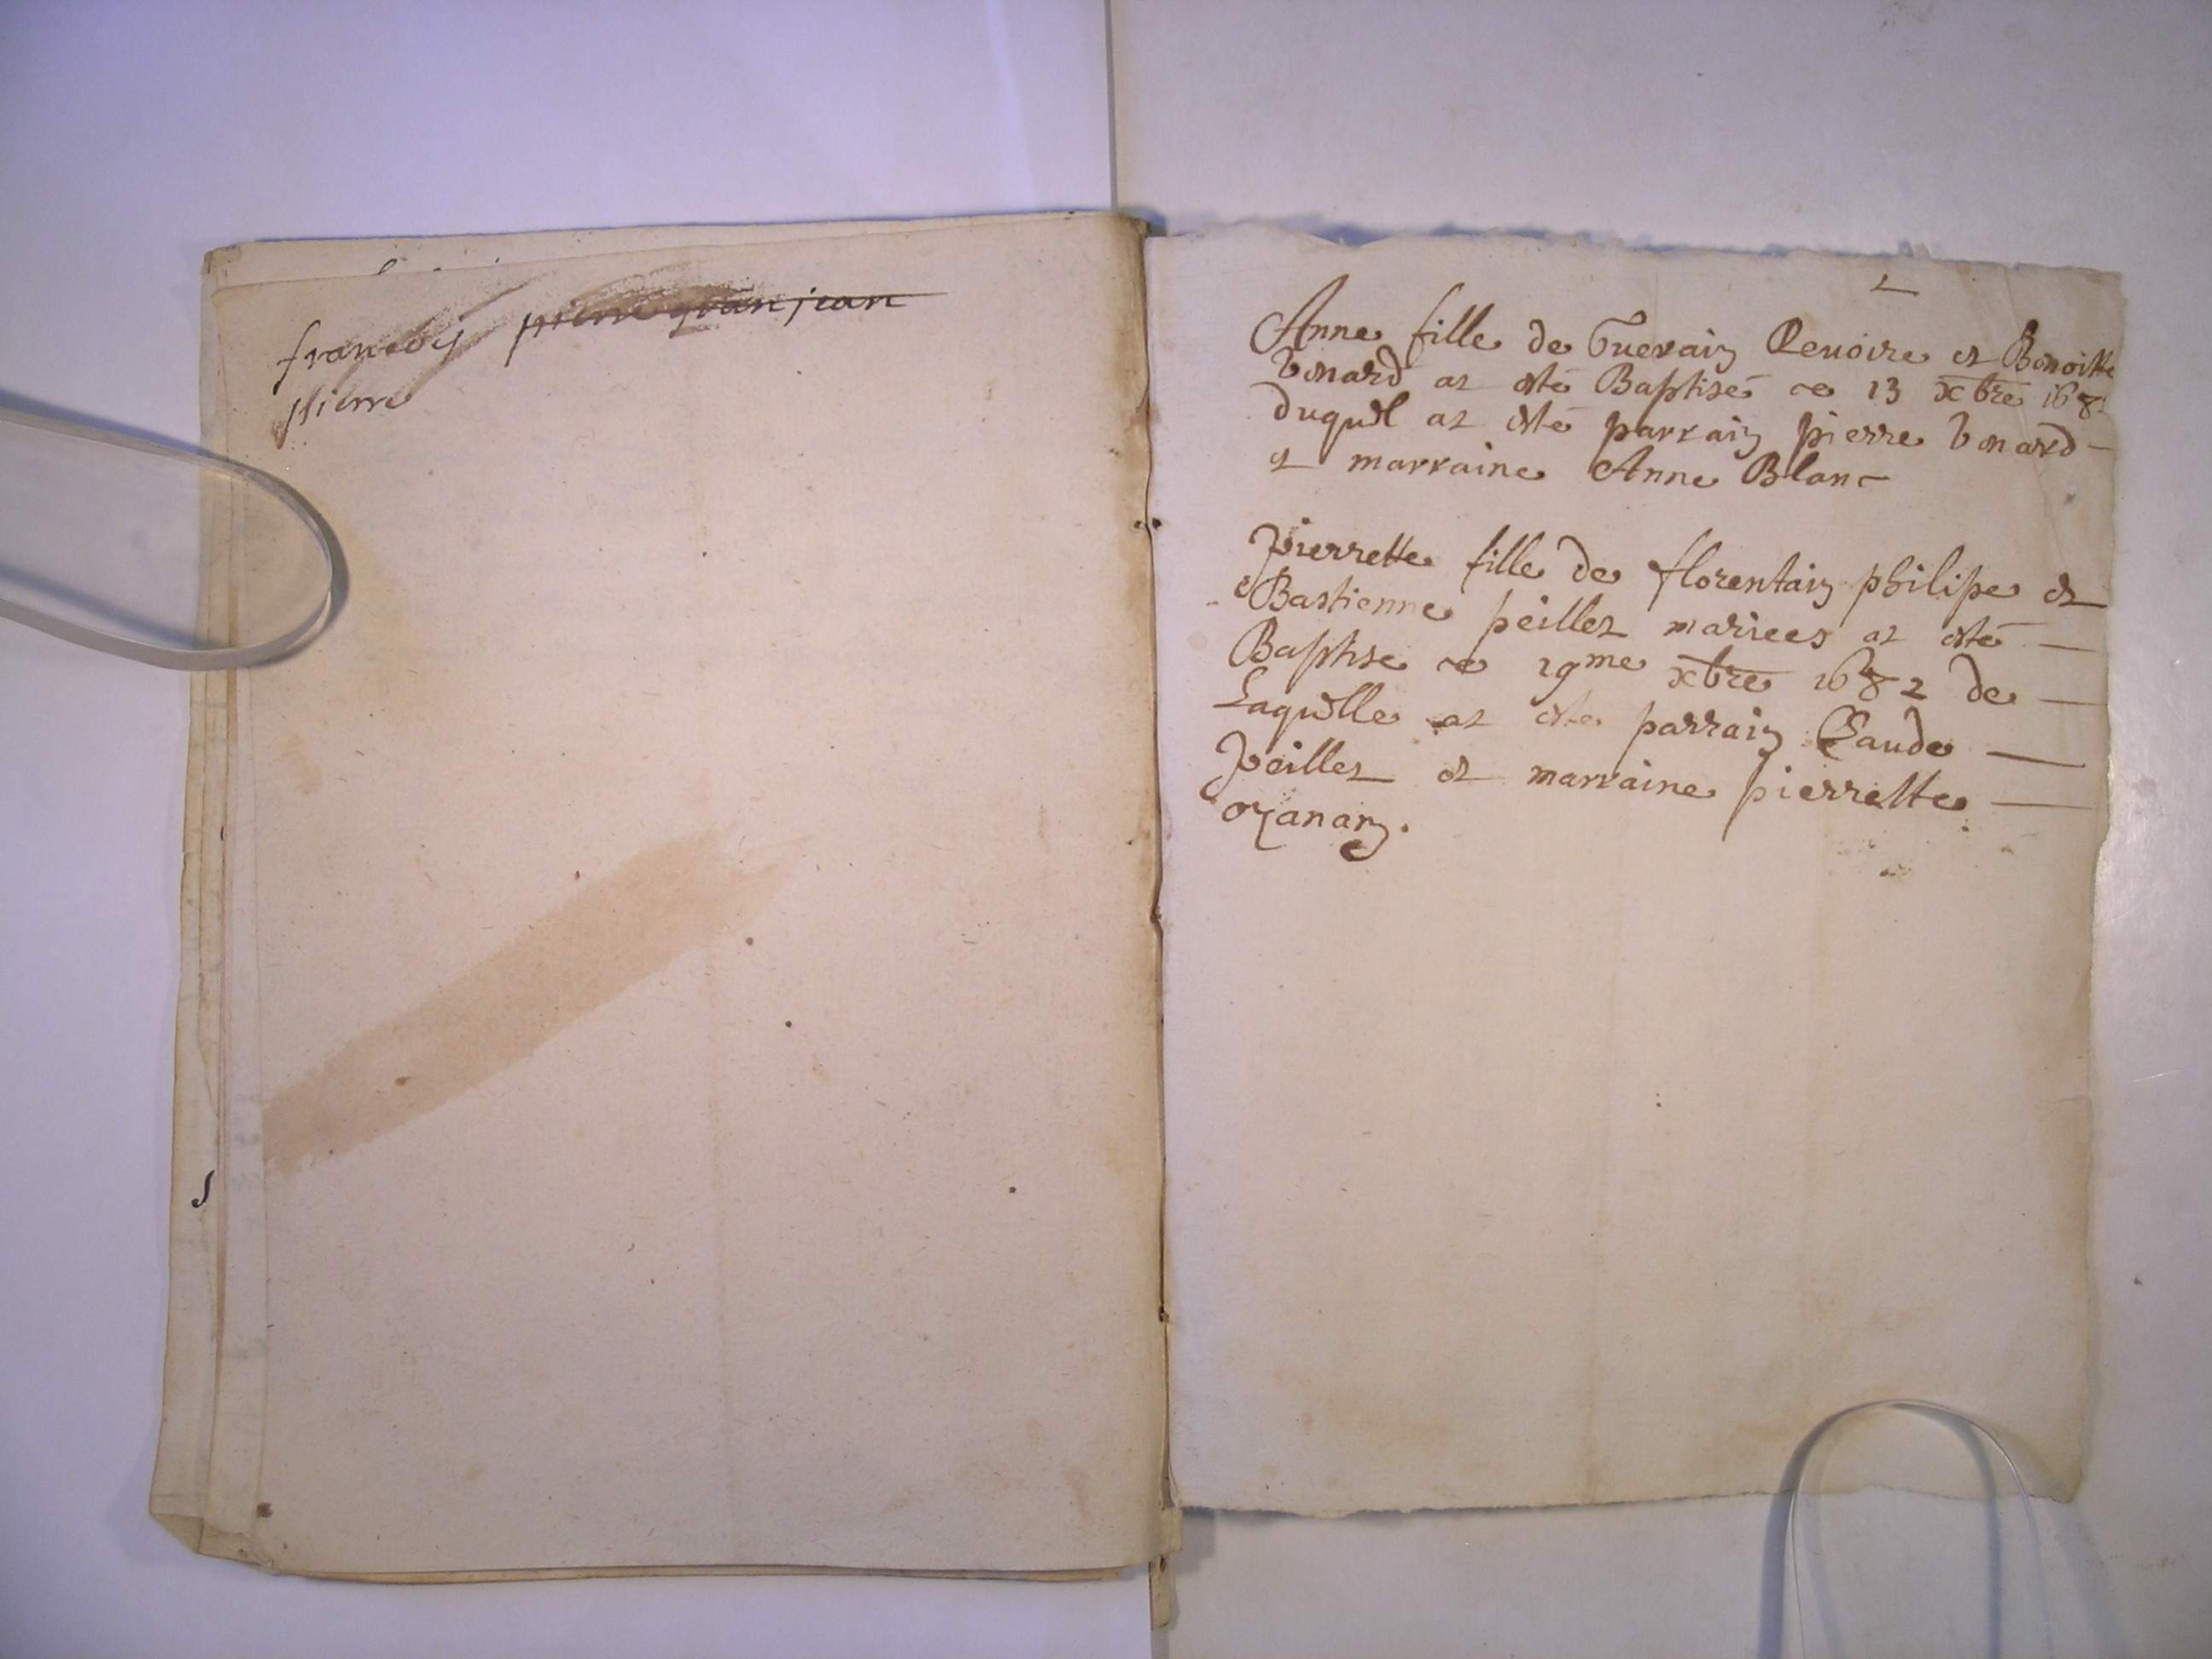 francoy pierre granjean
pierre
Anne fille de Guerain Renoire et Benoitte
bonard at esté Baptisé ce 13 xbre 168
duquel at esté parrain pierre bonard
et marraine Anne Blanc
pierrette fille de florentain philipe et
Bastienne peillet mariees at esté
Baptise ce 19me xbre 1682 de
Laquelle at este parrain Claude
peillet et marraine pierrette